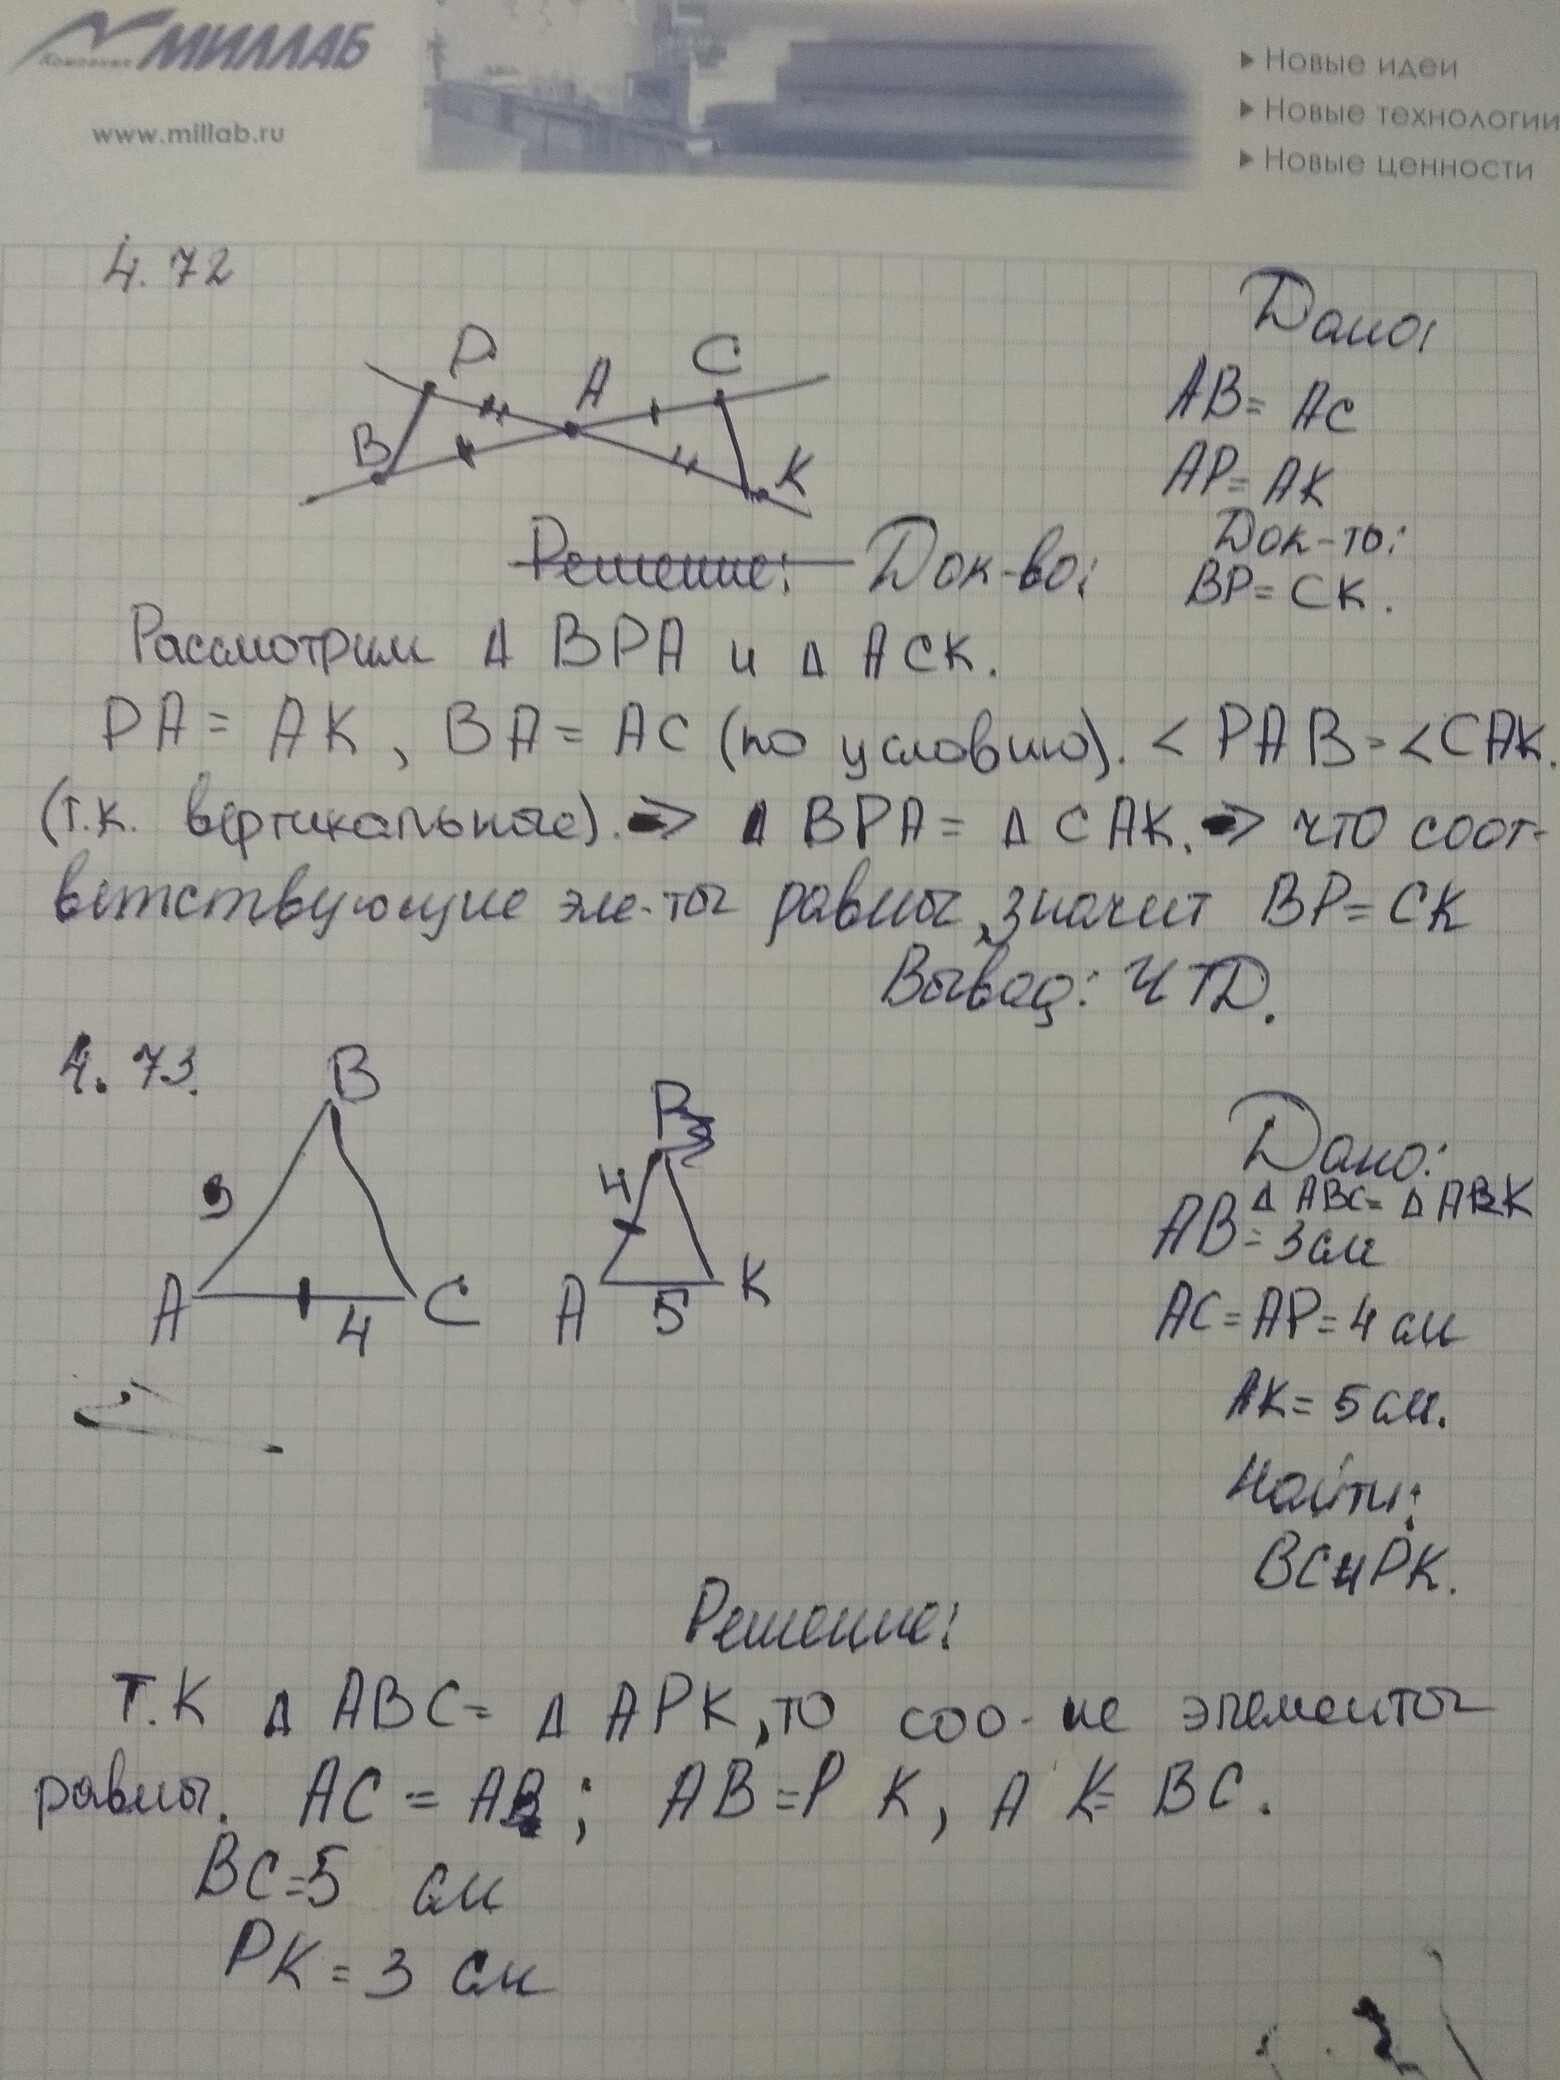 Компания МИЛЛАБ
www.millab.ru
Новые идеи
Новые технологии
Новые ценности
4.72
P
A
C
B
K
Дано:
AB = AC
AP = AK
Док-ть:
BP = CK.
Решение: Док-во:
Рассмотрим Δ BPA и Δ ACK.
PA = AK, BA = AC (по условию). < PAB = < CAK.
(т.к. вертикальные). => Δ BPA = Δ CAK. => что соот-
ветствующие эле-ты равны, значит BP = CK
Вывод: ЧТД.
4.73.
B
3
A
4
C
P
4
A
5
K
Дано:
Δ ABC = Δ APK
AB = 3 см
AC = AP = 4 см
AK = 5 см.
Найти:
BC и PK.
Решение:
Т.К Δ ABC = Δ APK, то соо-ие элементы
равны. AC = AP; AB = PK, AK = BC.
BC = 5 см
PK = 3 см